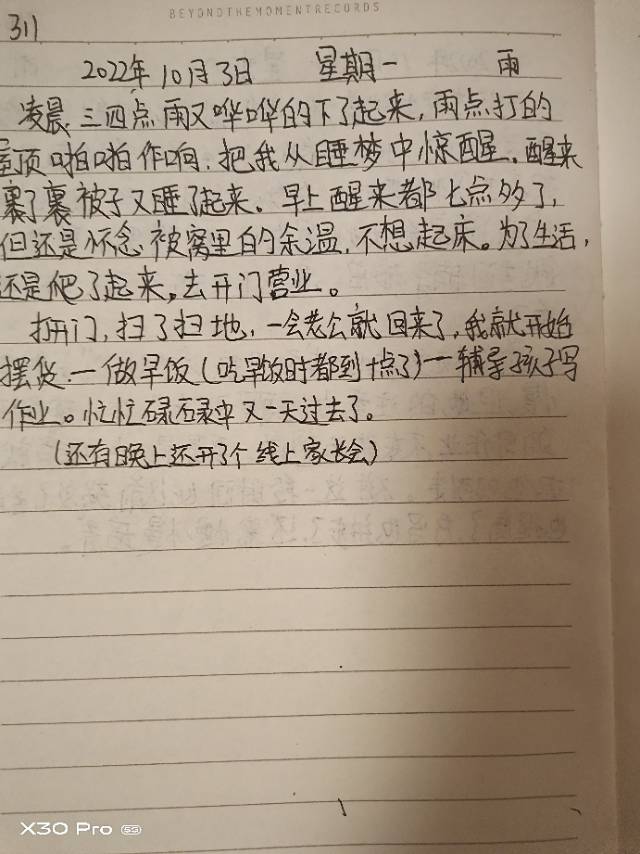 BEYONDTHEMOMENTRECORDS
311
2022年10月3日 星期一 雨
凌晨三四点雨又哗哗的下了起来,雨点打的
屋顶啪啪作响.把我从睡梦中惊醒.醒来
裹了裹被子又睡了起来.早上醒来都七点多了,
但还是怀念被窝里的余温,不想起床。为了生活,
还是爬了起来,去开门营业。
打开门,扫了扫地,一会老公就回来了,我就开始
摆货.一做早饭(吃早饭时都到十点了)一辅导孩子写
作业。忙忙碌碌中又一天过去了。
(还有晚上还开了个线上家长会)
X30 Pro 5G